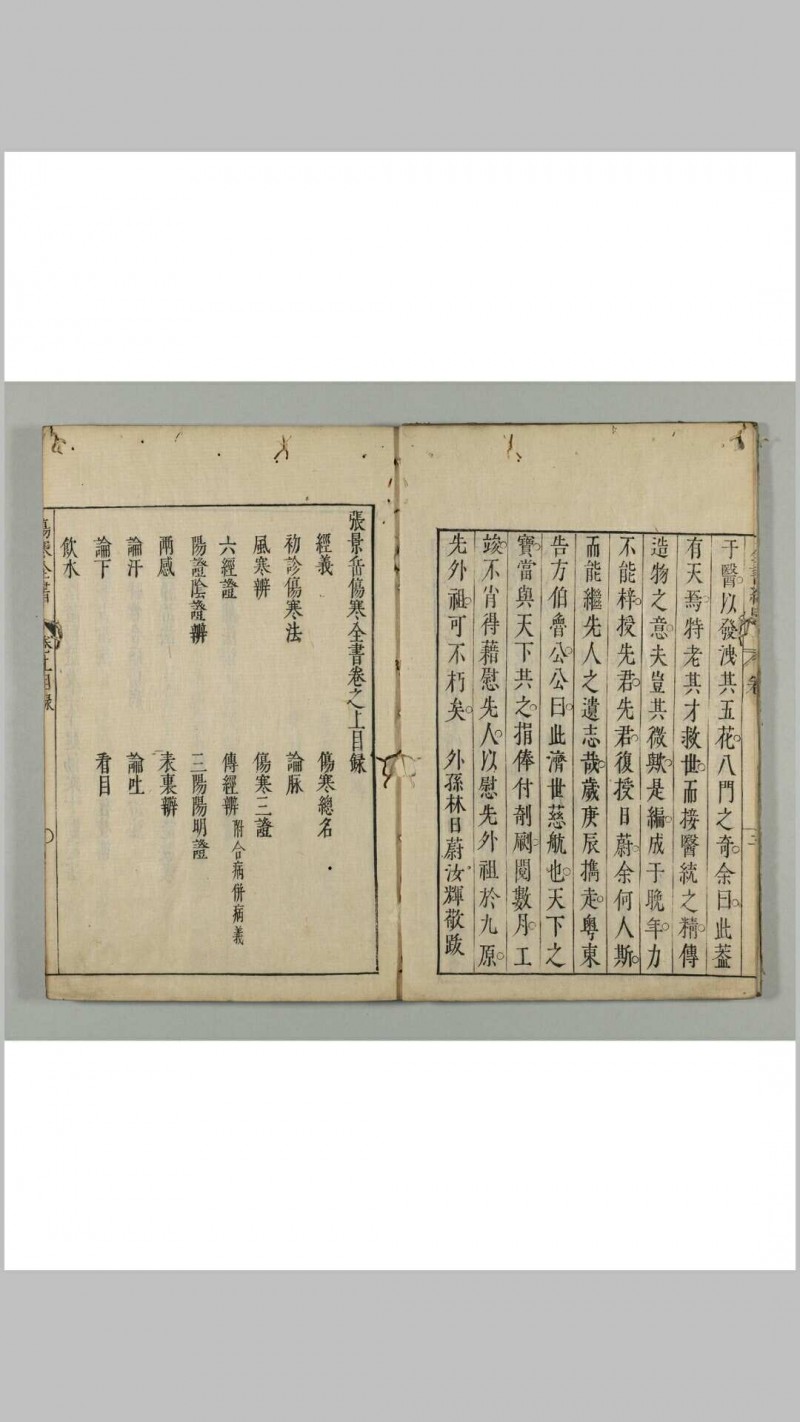 于醫以發洩其五花八門之奇余曰此葢
有天焉特老其才救世而接醫統之精傳
造物之意夫豈其微歟是編成于晚年力
不能梓授先君先君復授日蔚余何人斯
而能繼先人之遺志哉歲庚辰擕走粤東
告方伯魯公公曰此濟世慈航也天下之
寶當與天下共之捐俸付剞劂閱數月工
竣不肖得藉慰先人以慰先外祖於九原
先外祖可不朽矣 外孫林日蔚汝輝敬跋
張景岳傷寒全書卷之上目録
經義 傷寒總名
初診傷寒法 論脉
風寒辨 傷寒三證
六經證 傳經辨 附合病併病義
陽證陰證辨 三陽陽明證
兩感 表裏辨
論汗 論吐
論下 看目
飲水
傷寒全書 卷之上目録